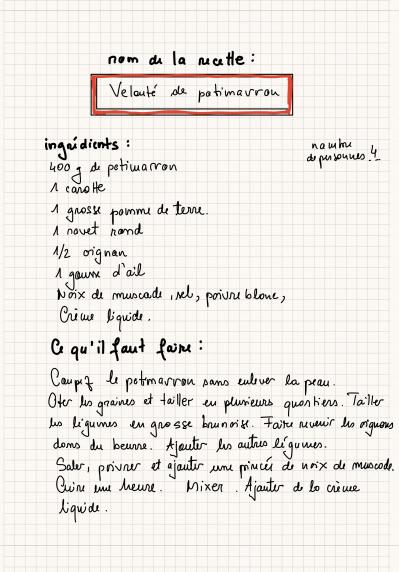 nom de la recette :
Velouté de potimarron
ingrédients :
nombre
de personnes 4
400 g de potimarron
1 carotte
1 grosse pomme de terre.
1 navet rond
1/2 oignon
1 gousse d'ail
Noix de muscade, sel, poivre blanc,
Crème liquide.
Ce qu'il faut faire :
Coupez le potimarron sans enlever la peau.
Oter les graines et tailler en plusieurs quartiers. Tailler
les légumes en grosse brunoise. Faire revenir les oignons
dans du beurre. Ajouter les autres légumes.
Saler, poivrer et ajouter une pincée de noix de muscade.
Cuire une heure. Mixer. Ajouter de la crème
liquide.